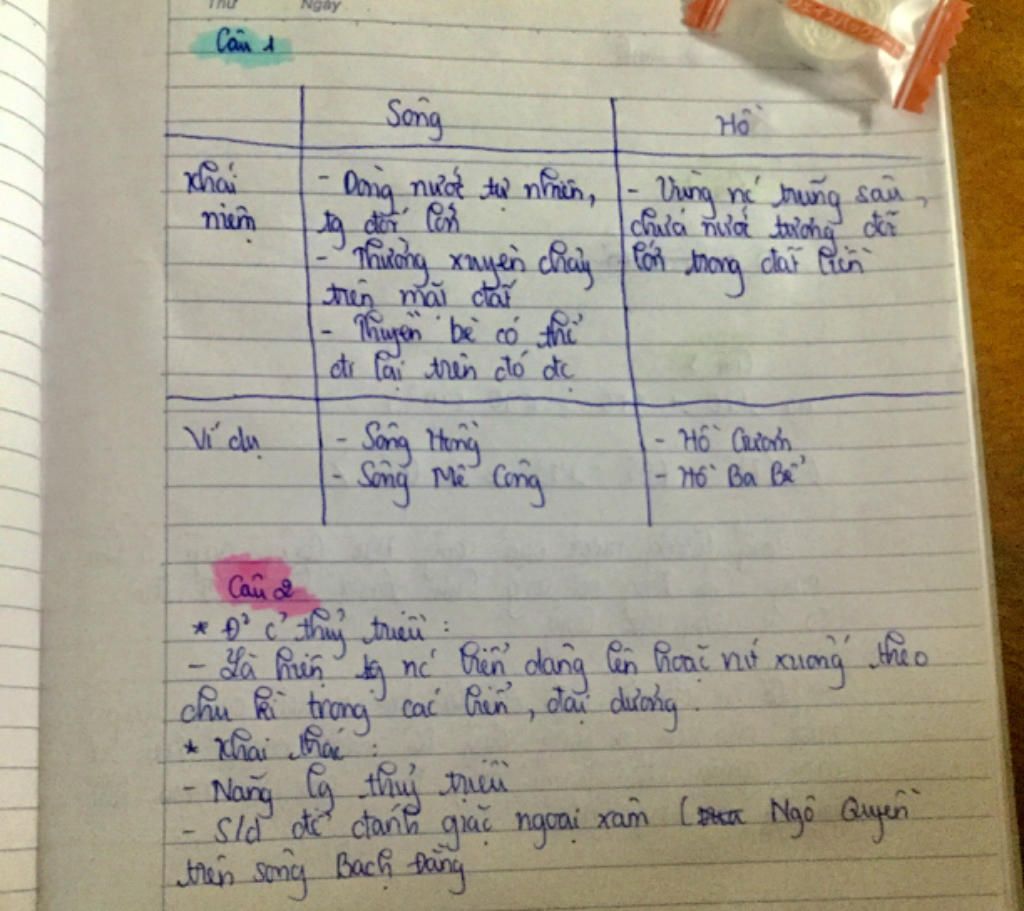 Thứ Ngày
Câu 1
Sông Hồ
Khái
niệm
- Dòng nước tự nhiên,
tg đối lớn
- Thường xuyên chảy
trên mặt đất
- Thuyền bè có thể
đi lại trên đó đc
- Vùng nc trũng sâu,
chứa nước tương đối
lớn trong đất liền
Ví dụ
- Sông Hồng
- Sông Mê Công
- Hồ Gươm
- Hồ Ba Bể
Câu 2
* Đ² c² thuỷ triều :
- Là hiện tg nc biển dâng lên hoặc rút xuống theo
chu kì trong các biển, đại dương.
* Khai thác :
- Năng lg thuỷ triều
- S/d để đánh giặc ngoại xâm ( Ngô Quyền
trên sông Bạch Đằng